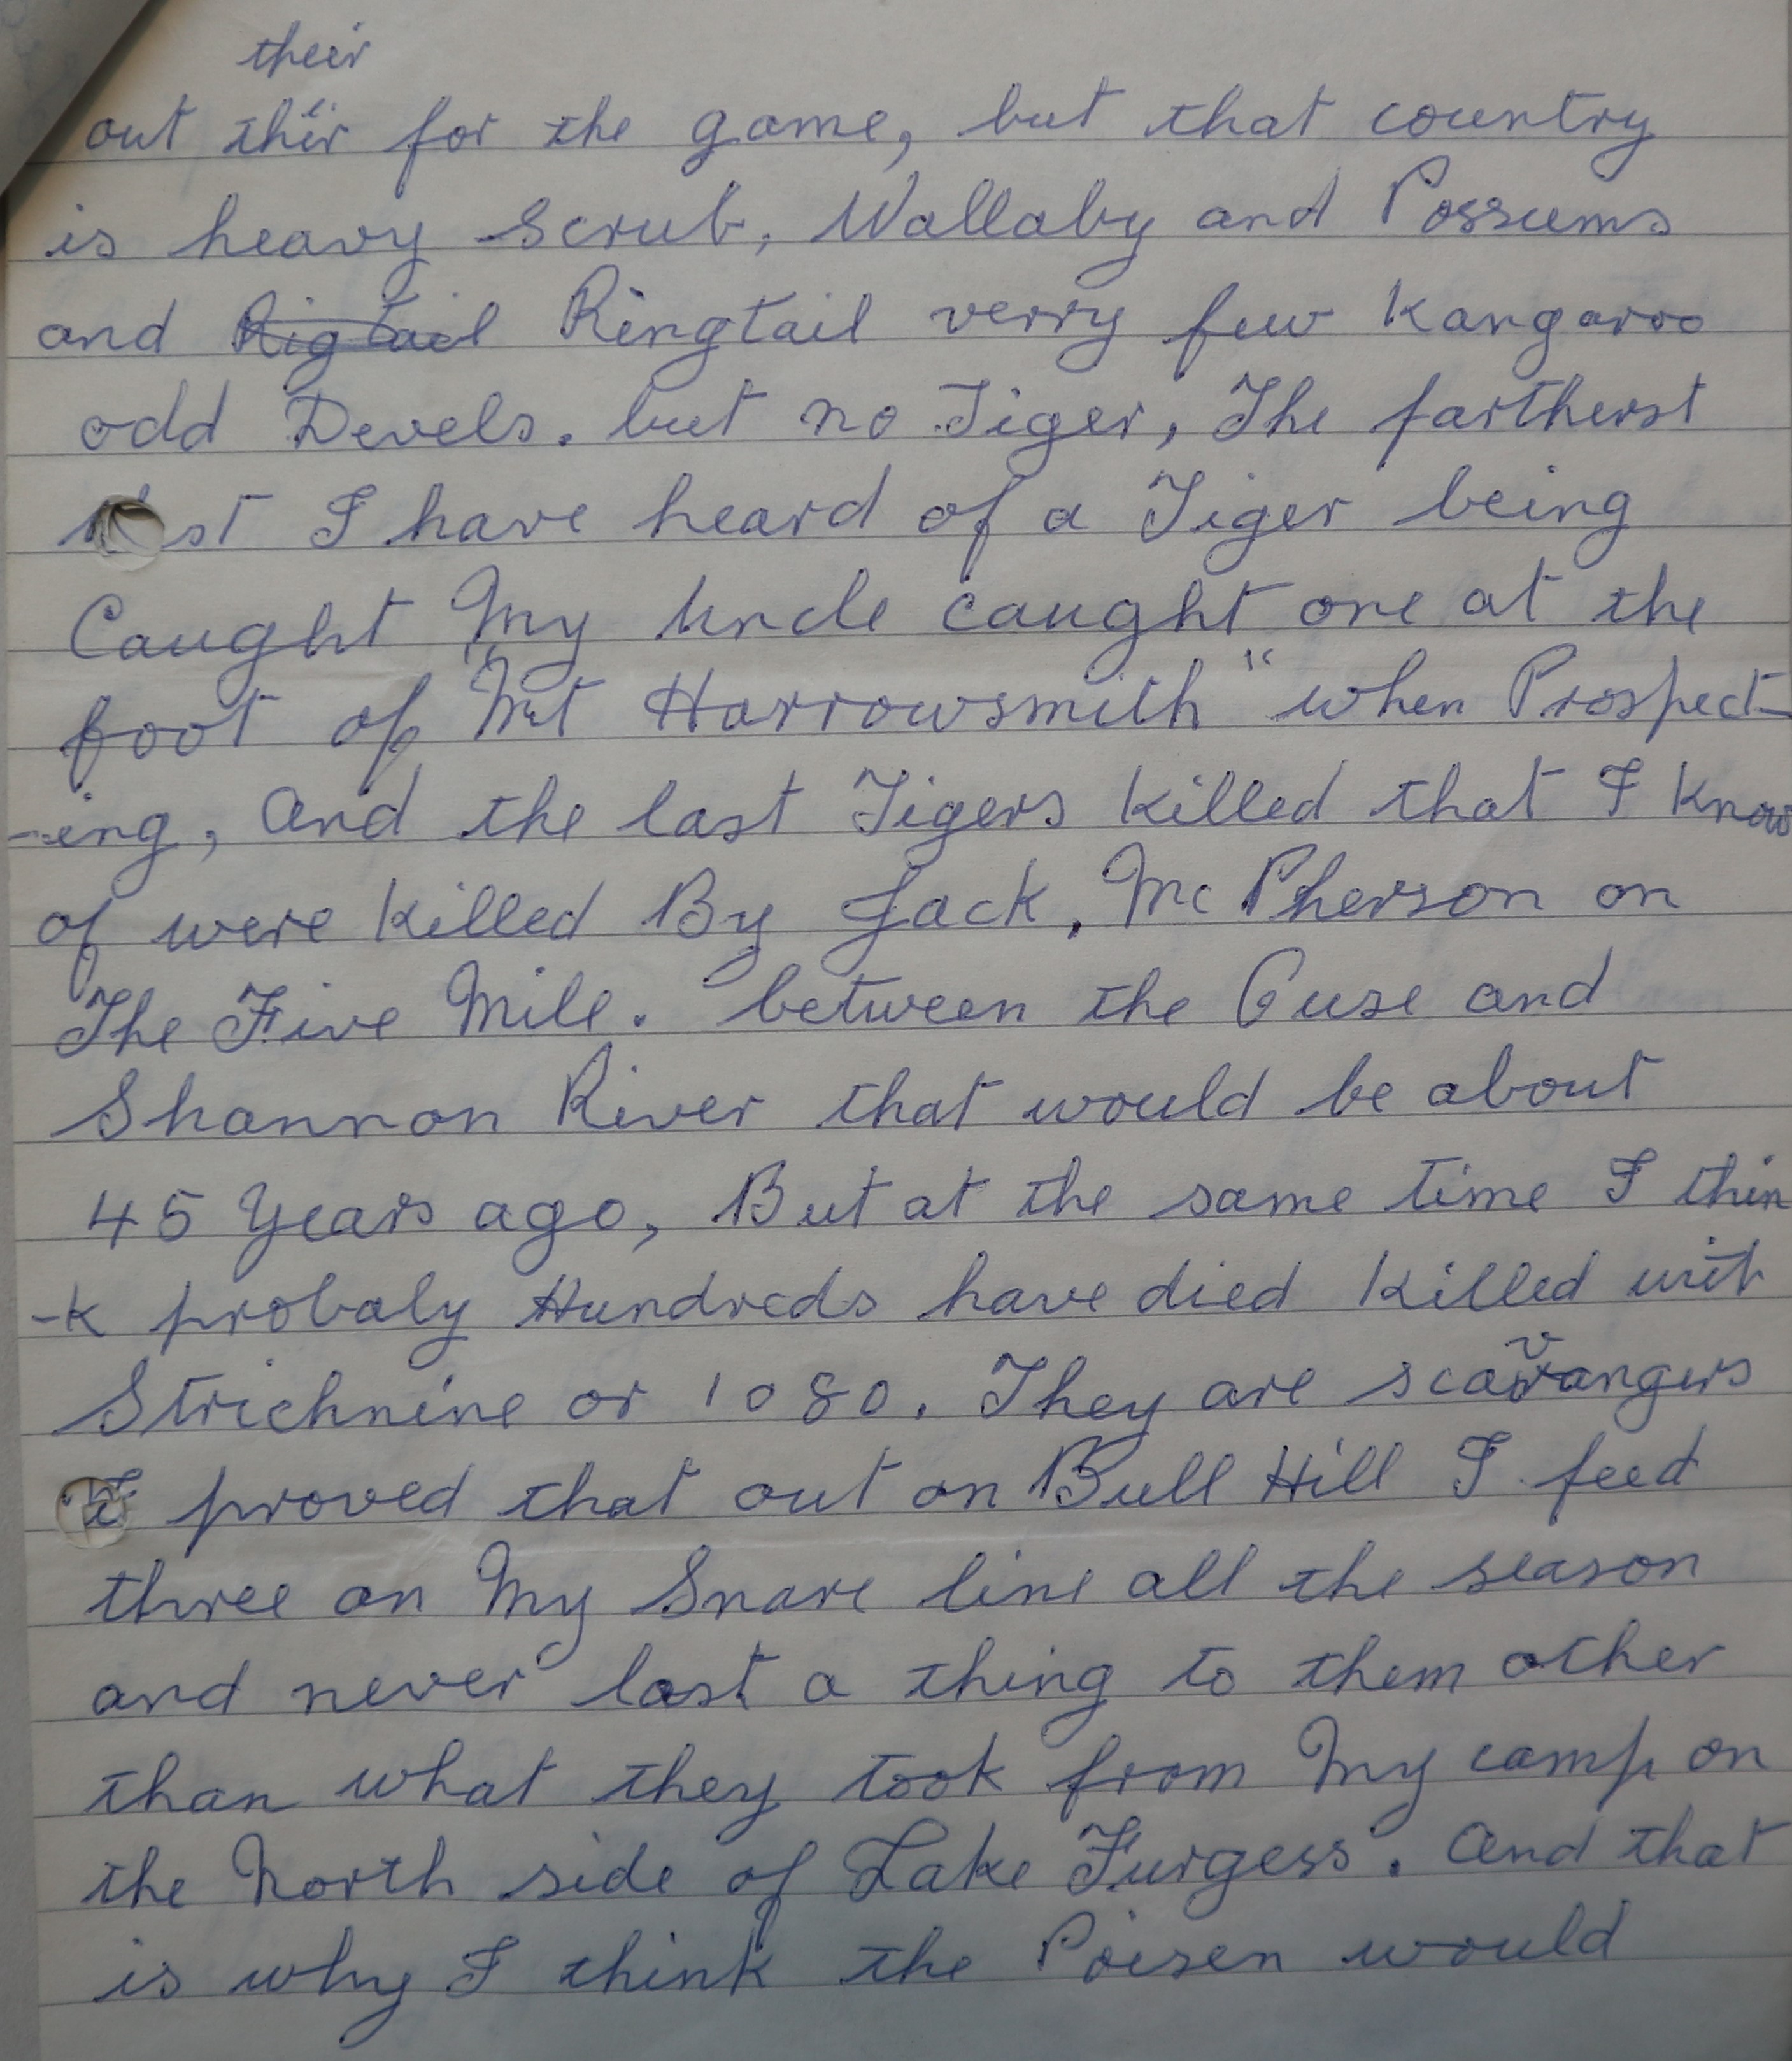 their
out their for the game, but that country
is heavy scrub, Wallaby and Possums
and Rigtail Ringtail verry few Kangaroo
odd Devels. but no Tiger, The fartherst
I have heard of a Tiger being
Caught My Uncle caught one at the
foot of "Mt Harrowsmith" when Prospect-
-ing, And the last Tigers killed that I know
of were killed By Jack, Mc Pherson on
The Five Mile. between the Ouse and
Shannon River that would be about
45 Years ago, But at the same time I thin
-k probaly Hundreds have died killed with
Strichnine or 1080. They are scavangers
I proved that out on Bull Hill I feed
three on My Snare line all the season
and never lost a thing to them other
than what they took from My camp on
the North side of Lake Furgess. And that
is why I think the Poisen would